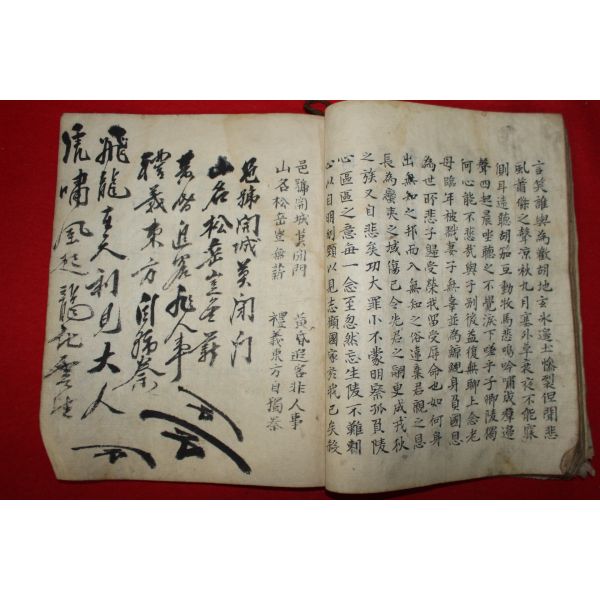 言笑誰與為歡胡地玄冰邊土慘裂但聞悲
風蕭條之聲凉秋九月塞外草衰夜不能寐
測耳遠聽胡笳互動牧馬悲鳴吟嘯成群邊
聲四起晨坐聽之不覺淚下嗟乎子卿陵獨
何心能不悲哉與子別後益復無聊上念老
母臨年被戮妻子無辜並為鯨鯢身負國恩
為世所悲子歸受榮我留受辱命也如何身
出無知之邦而入無知之俗違棄君親之恩
長為蠻夷之域傷已令先君之嗣更成戎狄
之族又自悲矣功大罪小不蒙明察孤負陵
心區區之意每一念至忽然忘生陵不難刺
心以自明刎頸以見志顧國家於我已矣殺
邑號開城莫閉門 黃昏追客非人事
山名松岳豈無薪 禮義東方自獨秦
邑號開城莫閉門
山名松岳豈無薪
黃昏追客非人事
禮義東方自獨秦
飛龍在天利見大人
虎嘯風起龍起雲生